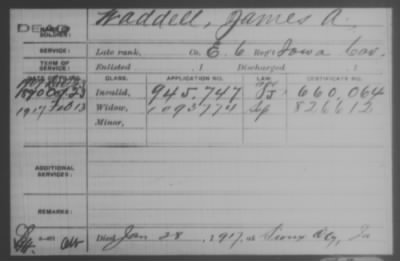 DEAD
NAME OF SOLDIER: Waddell, James A.
SERVICE: Late rank, Co. E. 6 Reg't Iowa Cav.
TERM OF SERVICE: Enlisted , 1 Discharged , 1
DATE OF FILING. CLASS. APPLICATION NO. LAW. CERTIFICATE NO.
Invalid, 945.747 660,064
1917 Feb 13 Widow, 1093774 826612
Minor,
ADDITIONAL SERVICES:
REMARKS:
Died Jan 28, 1917, at Sioux City, Ia